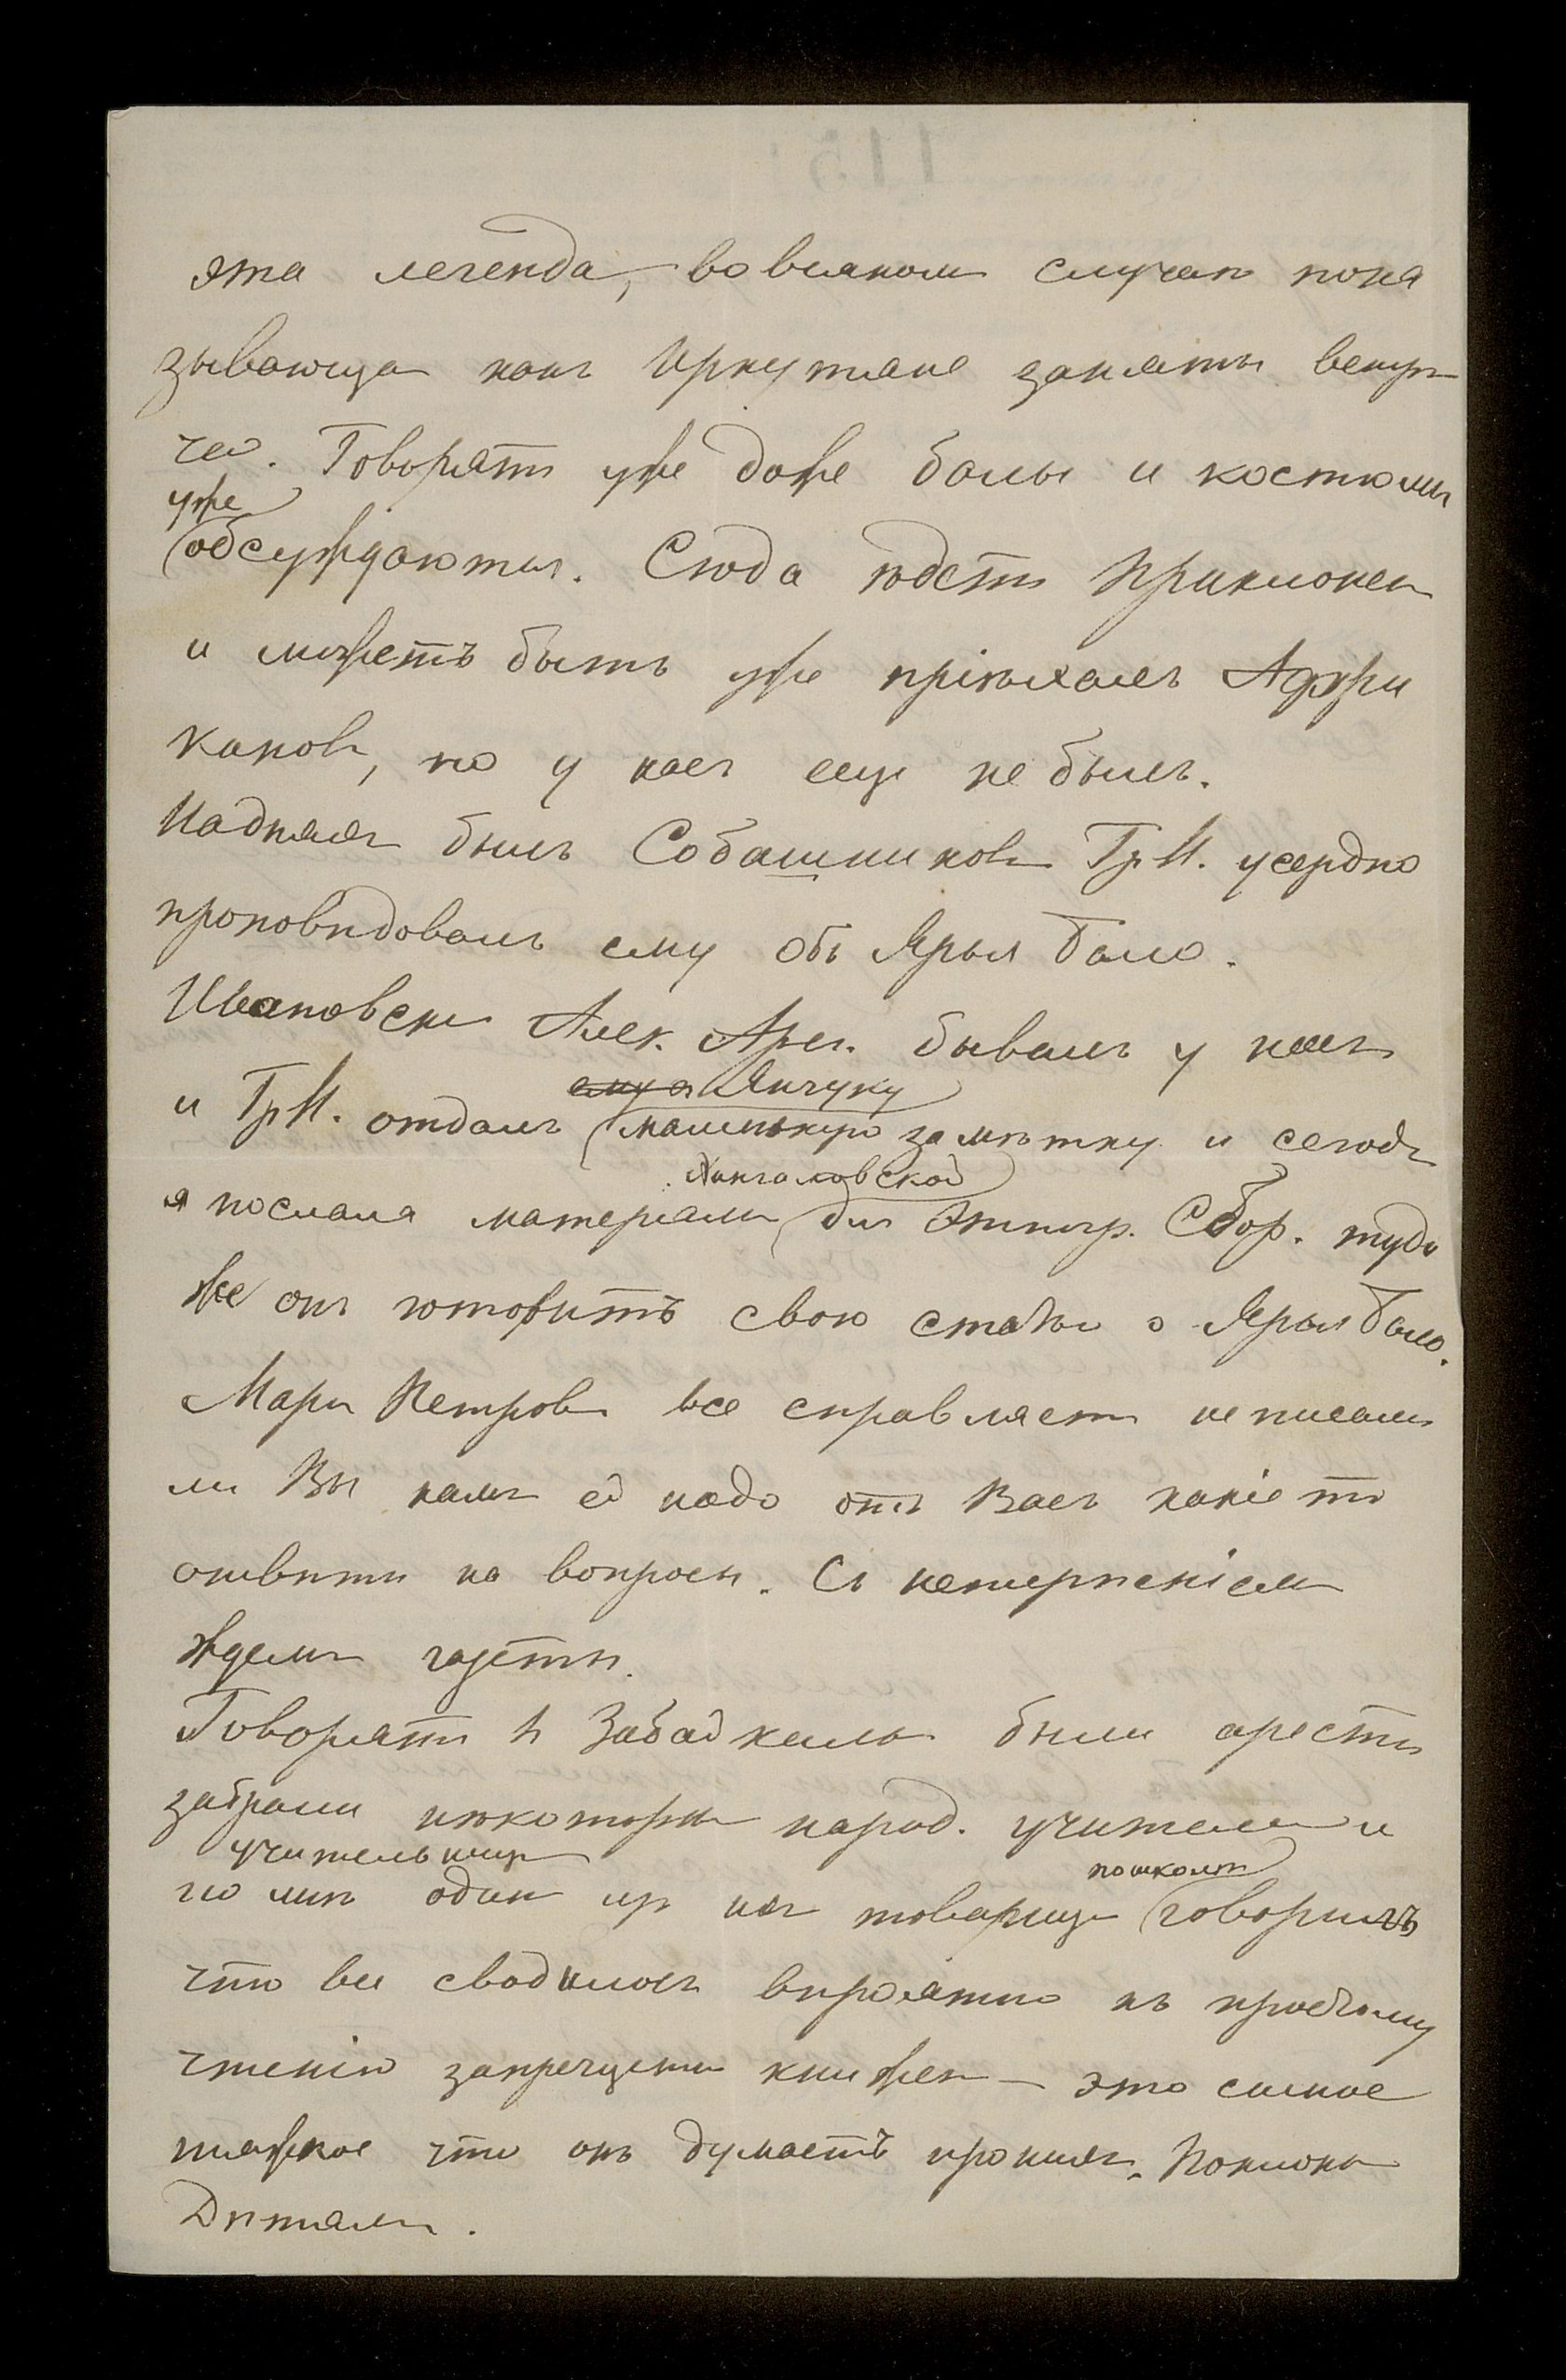 эта легенда, во всяком случаѣ пока
зывающая какъ Иркутяне заняты встрѣ
чей. Говорятъ уже даже балы и костюмы
уже
обсуждаются. Сюда ѣдетъ Приклонск
и можетъ быть уже пріѣхалъ Африкановъ
кановъ, но у насъ еще не былъ.
На дняхъ былъ Собашниковъ Гр. Н. усердно
проповѣдовалъ ему объ Ярын Бало.
Ивановски Алек. Арс. бывалъ у насъ
ему я Янчуку
и Гр Н. отдалъ маленькую замѣтку и сегод
Хангаловской
я послала матеріалы для Этногр. Сбор. туда
же онъ готовитъ свою статью о Ярын Бало.
Марья Петров все справляет не писали
ли Вы нам ей надо отъ Васъ какіе то
отвѣты на вопросы. Съ нетерпѣніем
ждемъ газеты.
Говорятъ в Забайкаль были аресты
забрали некоторы народ. учителей и
учительниц
но мнѣ один из их товарищ говорилъ
по школѣ
что все сводилось вѣроятно къ простому
чтенію запрещенн книжек — это самое
тяжкое что онъ думаетъ про них. Поклоны
Дѣтям.